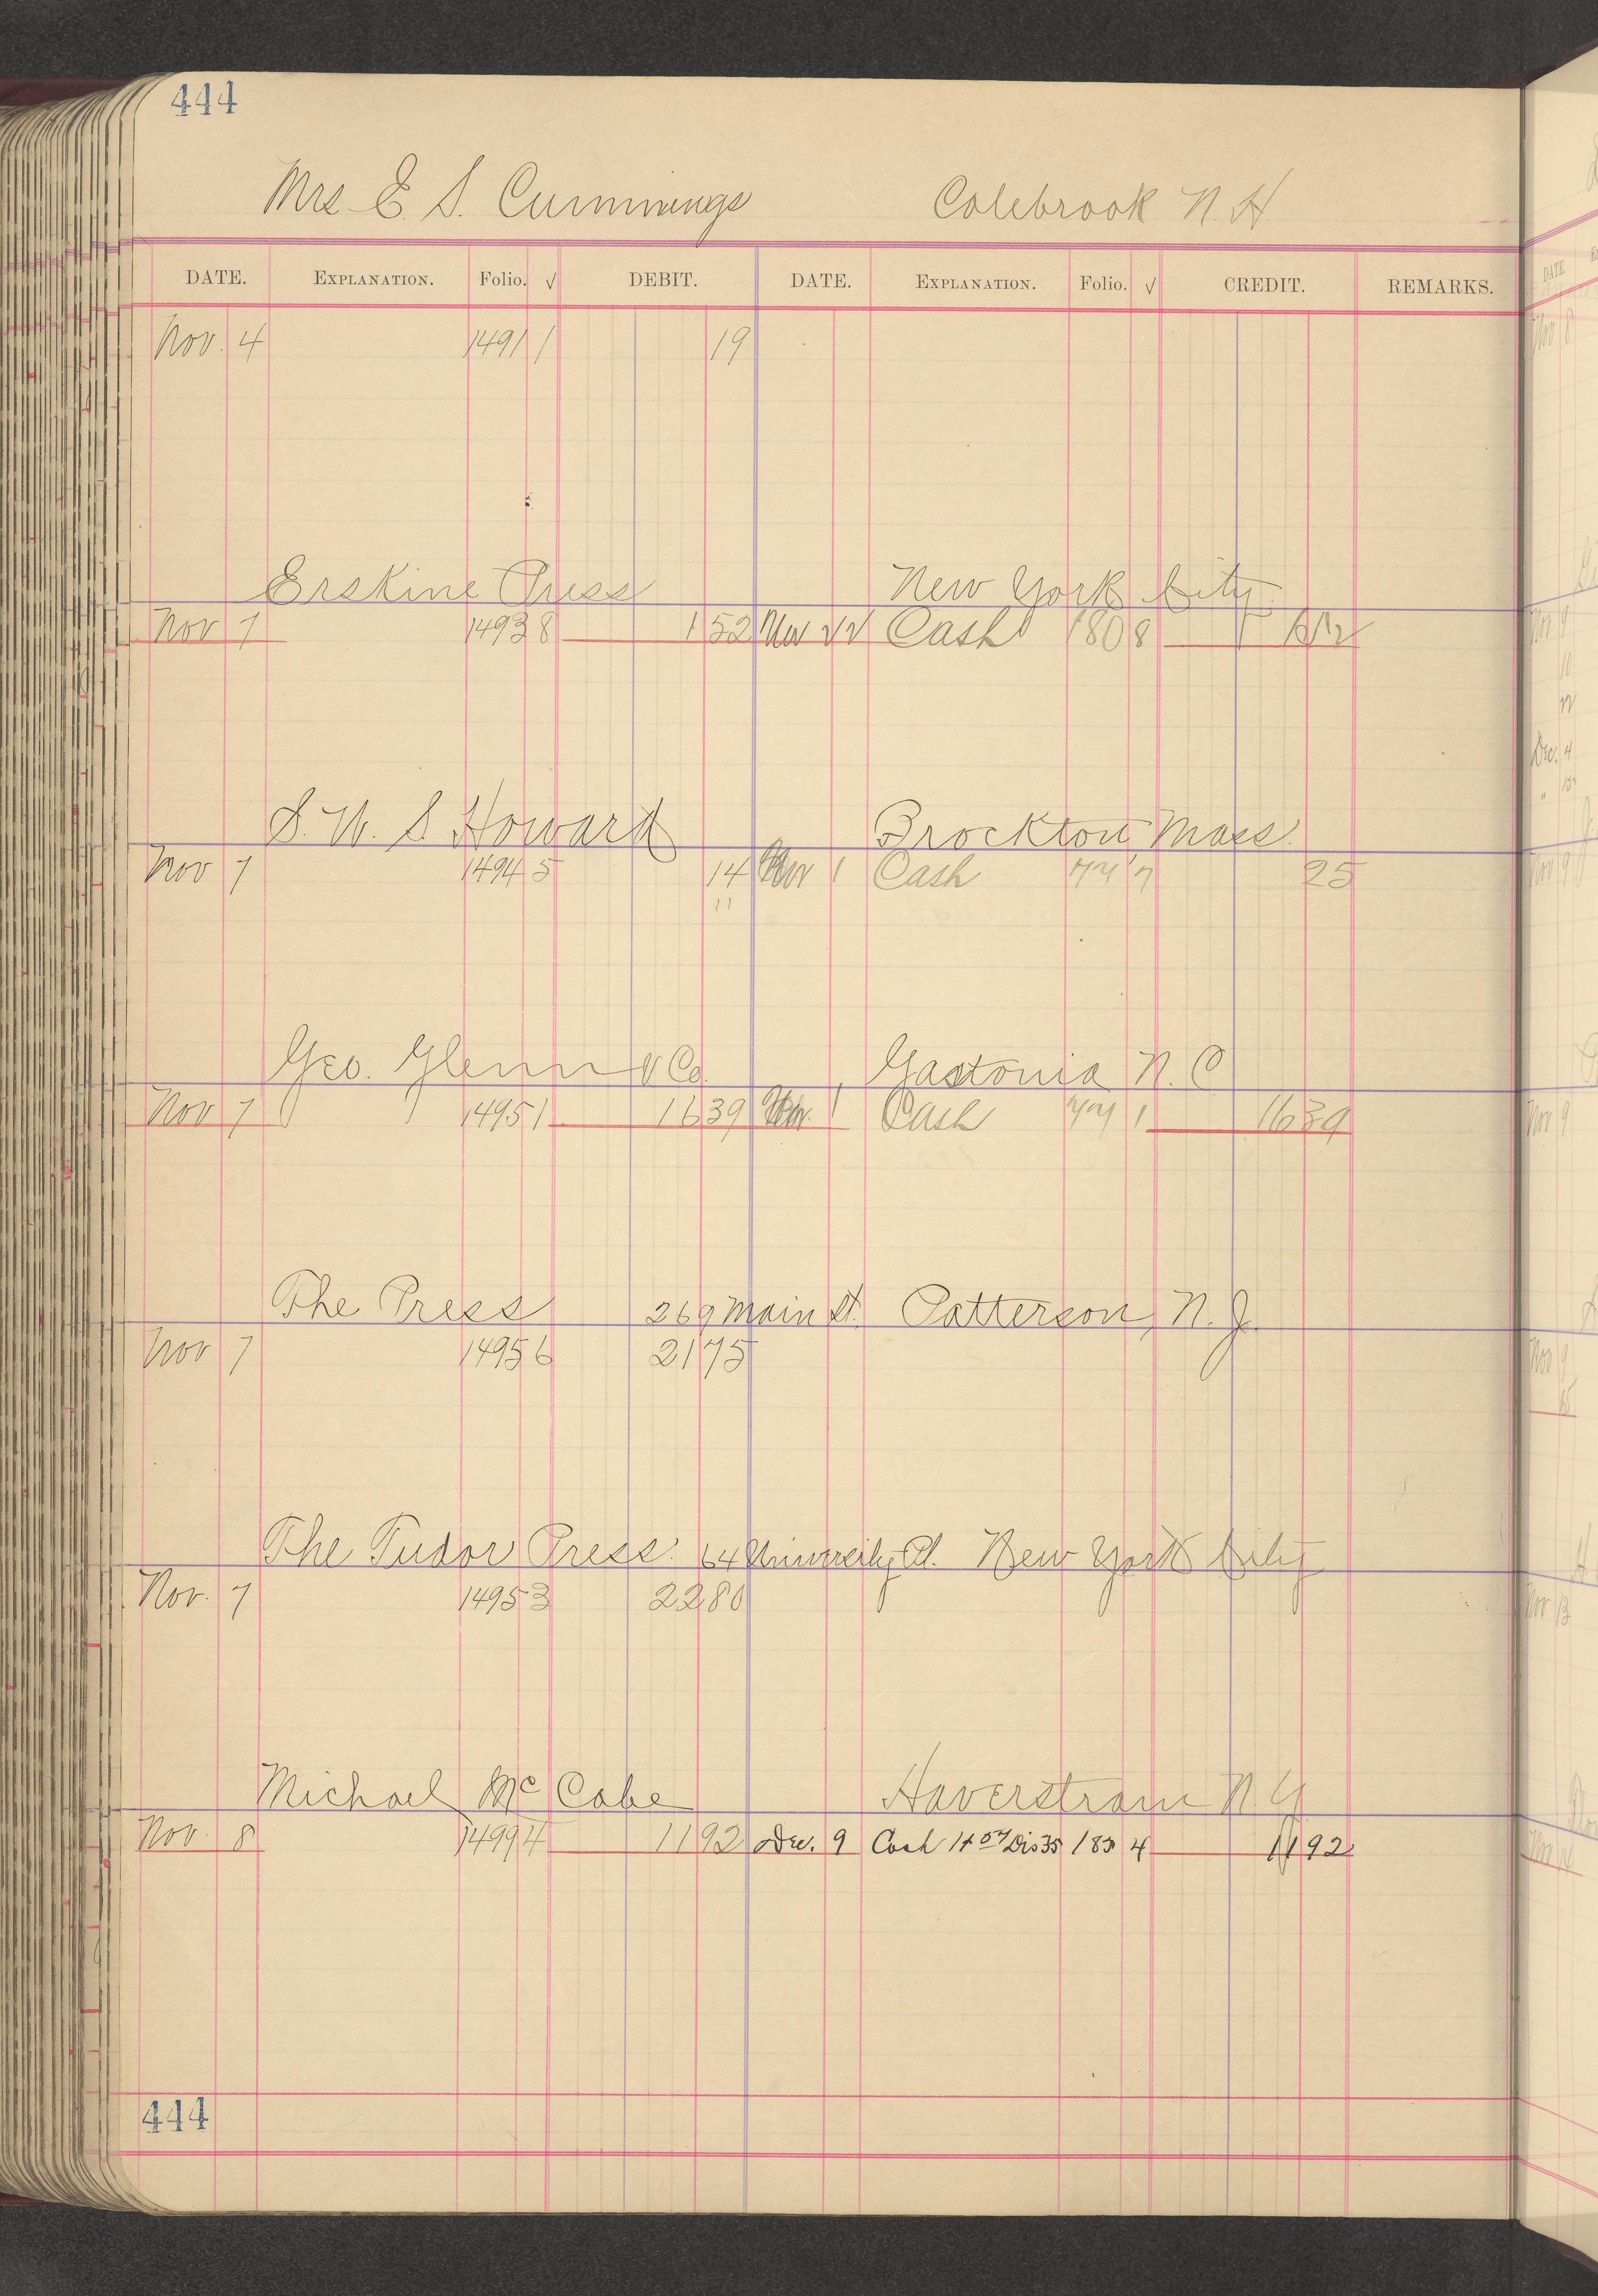 444
Mrs E. S. Cummings Colebrook N. H
DATE. EXPLANATION. Folio. √ DEBIT. DATE. EXPLANATION. Folio. √ CREDIT. REMARKS.
Nov. 4 14911 19
Erskine Press New York City
Nov 7 14938 1 52 Cash 1808
S. W. S Howard Brockton Mass.
Nov 7 14945 14 Cash 25
11
Geo. Glenn & Co. Gastonia N. C
Nov 7 14951 16 39 Cash 16 39
The Press 269 Main St. Patterson, N. J.
Nov 7 14956 21 75
The Tudor Press. 64 University Pl. New York City
Nov. 7 14953 22 80
Michael Mc Cabe Haverstram N. Y
Nov. 8 14994 11 92 Dec. 9 Cash 11 57 Dis 35 183 4 11 92
444